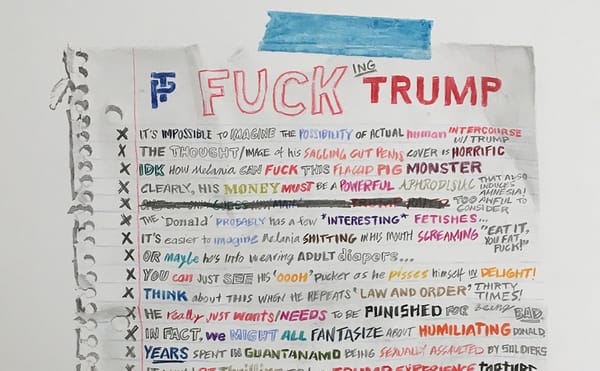 TP FUCKING TRUMP
X IT'S IMPOSSIBLE TO IMAGINE THE POSSIBILITY OF ACTUAL human INTERCOURSE W/ TRUMP
X THE THOUGHT/IMAGE of his SAGGING GUT PENIS COVER is HORRIFIC
X IDK HOW Melania CAN FUCK THIS FLACCID PIG MONSTER
X CLEARLY, HIS MONEY MUST BE A POWERFUL APHRODISIAC THAT ALSO INDUCES AMNESIA!
X TRUMP TOO AWFUL TO CONSIDER
X THE 'Donald' PROBABLY has a few *INTERESTING* FETISHES...
X IT'S easier to imagine Melania SHITTING IN HIS MOUTH SCREAMING "EAT IT, YOU FAT FUCK!"
X OR maybe he's into wearing ADULT diapers...
X YOU can JUST SEE HIS 'OOOH' Pucker as he pisses himself in DELIGHT!
X THINK about THIS WHEN HE REPEATS 'LAW AND ORDER' THIRTY TIMES!
X HE really JUST wants/NEEDS TO BE PUNISHED FOR being BAD.
X IN FACT, we MIGHT ALL FANTASIZE ABOUT HUMILIATING DONALD,
X YEARS SPENT IN GUANTANAMO BEING SEXUALLY ASSAULTED BY SOLDIERS
TRUMP EXPERIENCE TORTURE